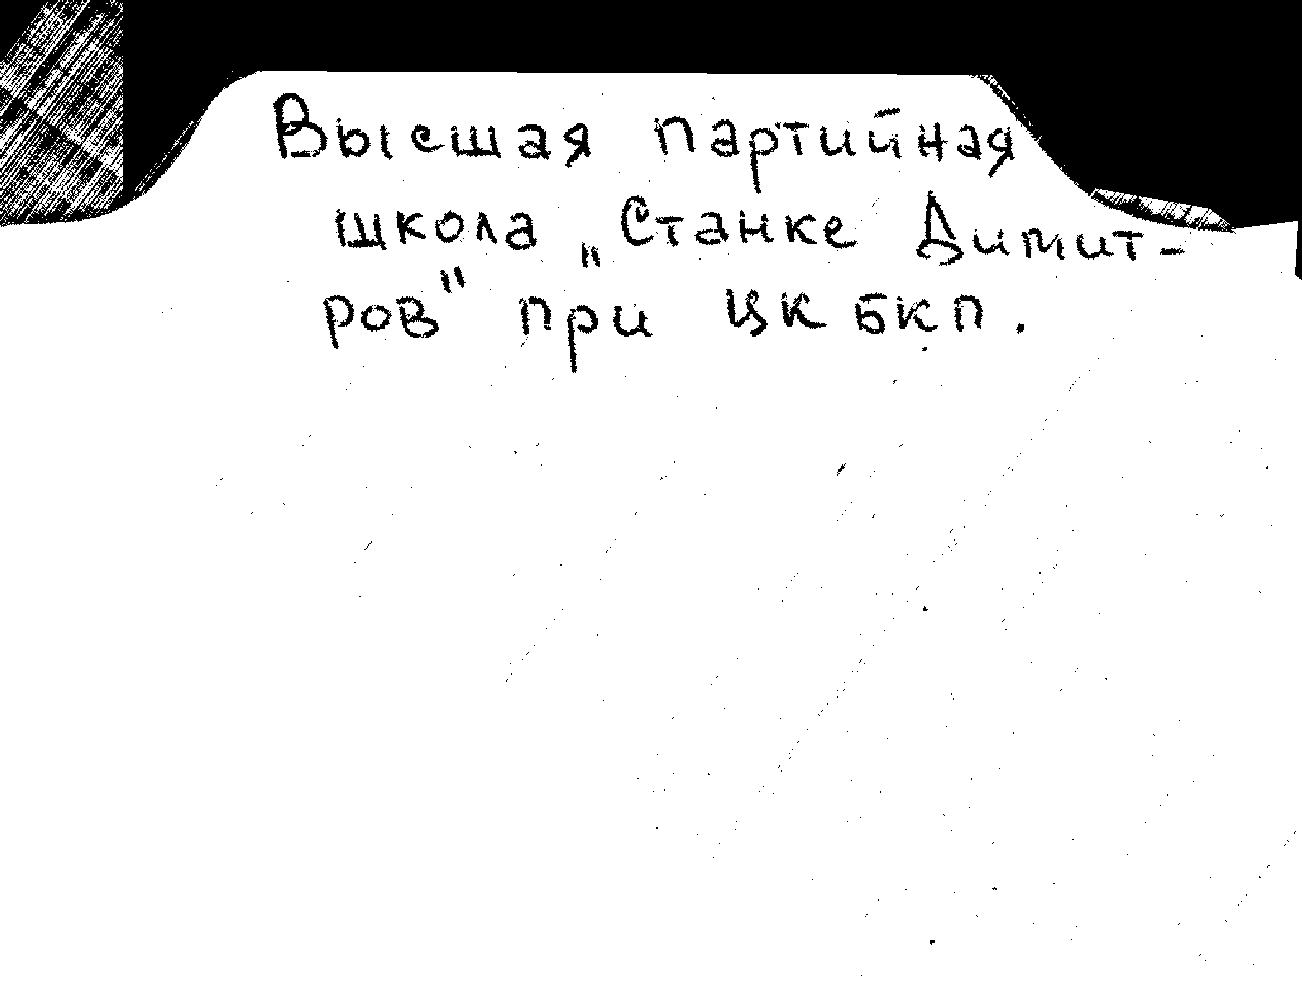 Высшая партийная
школа „Станке Димит-
ров" при ЦК БКП.